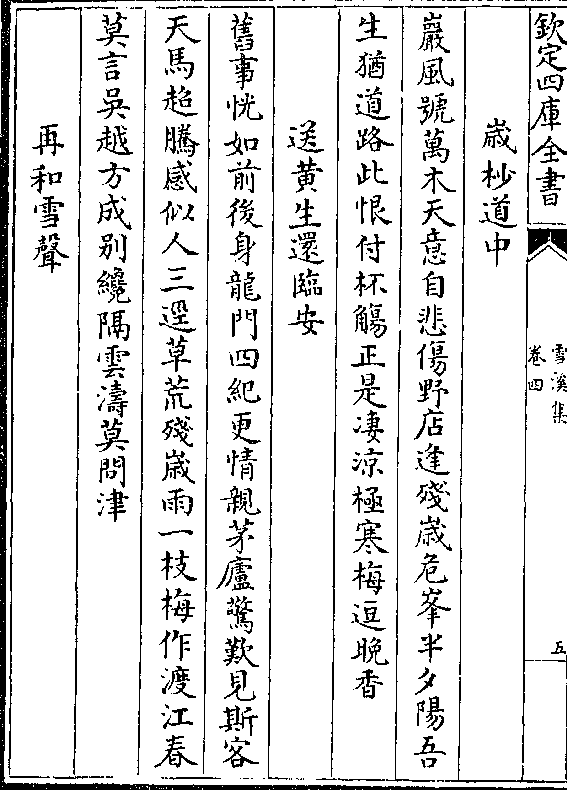 欽定四庫全書
雪溪集
卷四
五
歲杪道中
巖風號萬木天意自悲傷野店逢殘歲危峯半夕陽吾
生猶道路此恨付杯觴正是凄涼極寒梅逗晚香
送黄生還臨安
舊事恍如前後身龍門四紀更情親茅廬驚歎見斯客
天馬超騰感似人三逕草荒殘歲雨一枝梅作渡江春
莫言吳越方成别纔隔雲濤莫問津
再和雪聲